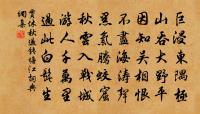 巨浸東隅極
山吞大野平
因知吳相恨
不盡海濤聲
黑氣騰蛟窟
秋雲入戰城
游人千萬里
過此白髭生
貫休秋過錢塘江詞典
網集